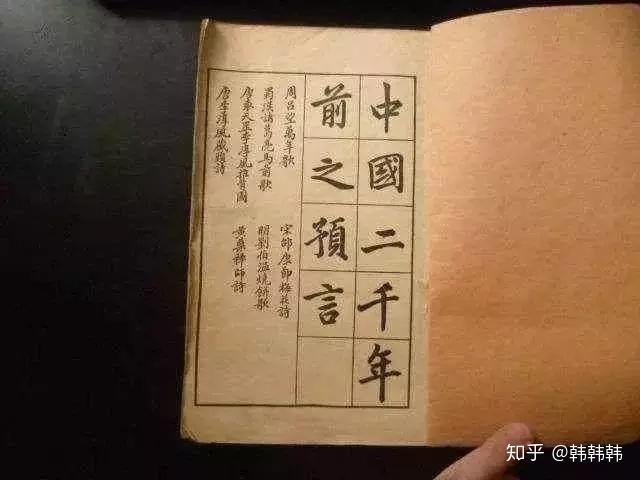 中國二千年
前之預言
周呂望萬年歌
蜀漢諸葛亮馬前歌
唐袁天罡李淳風推背圖
唐李淳風藏頭詩
宋邵康節梅花詩
明劉伯溫燒餅歌
黃蘗禪師詩
知乎 @韩韩韩